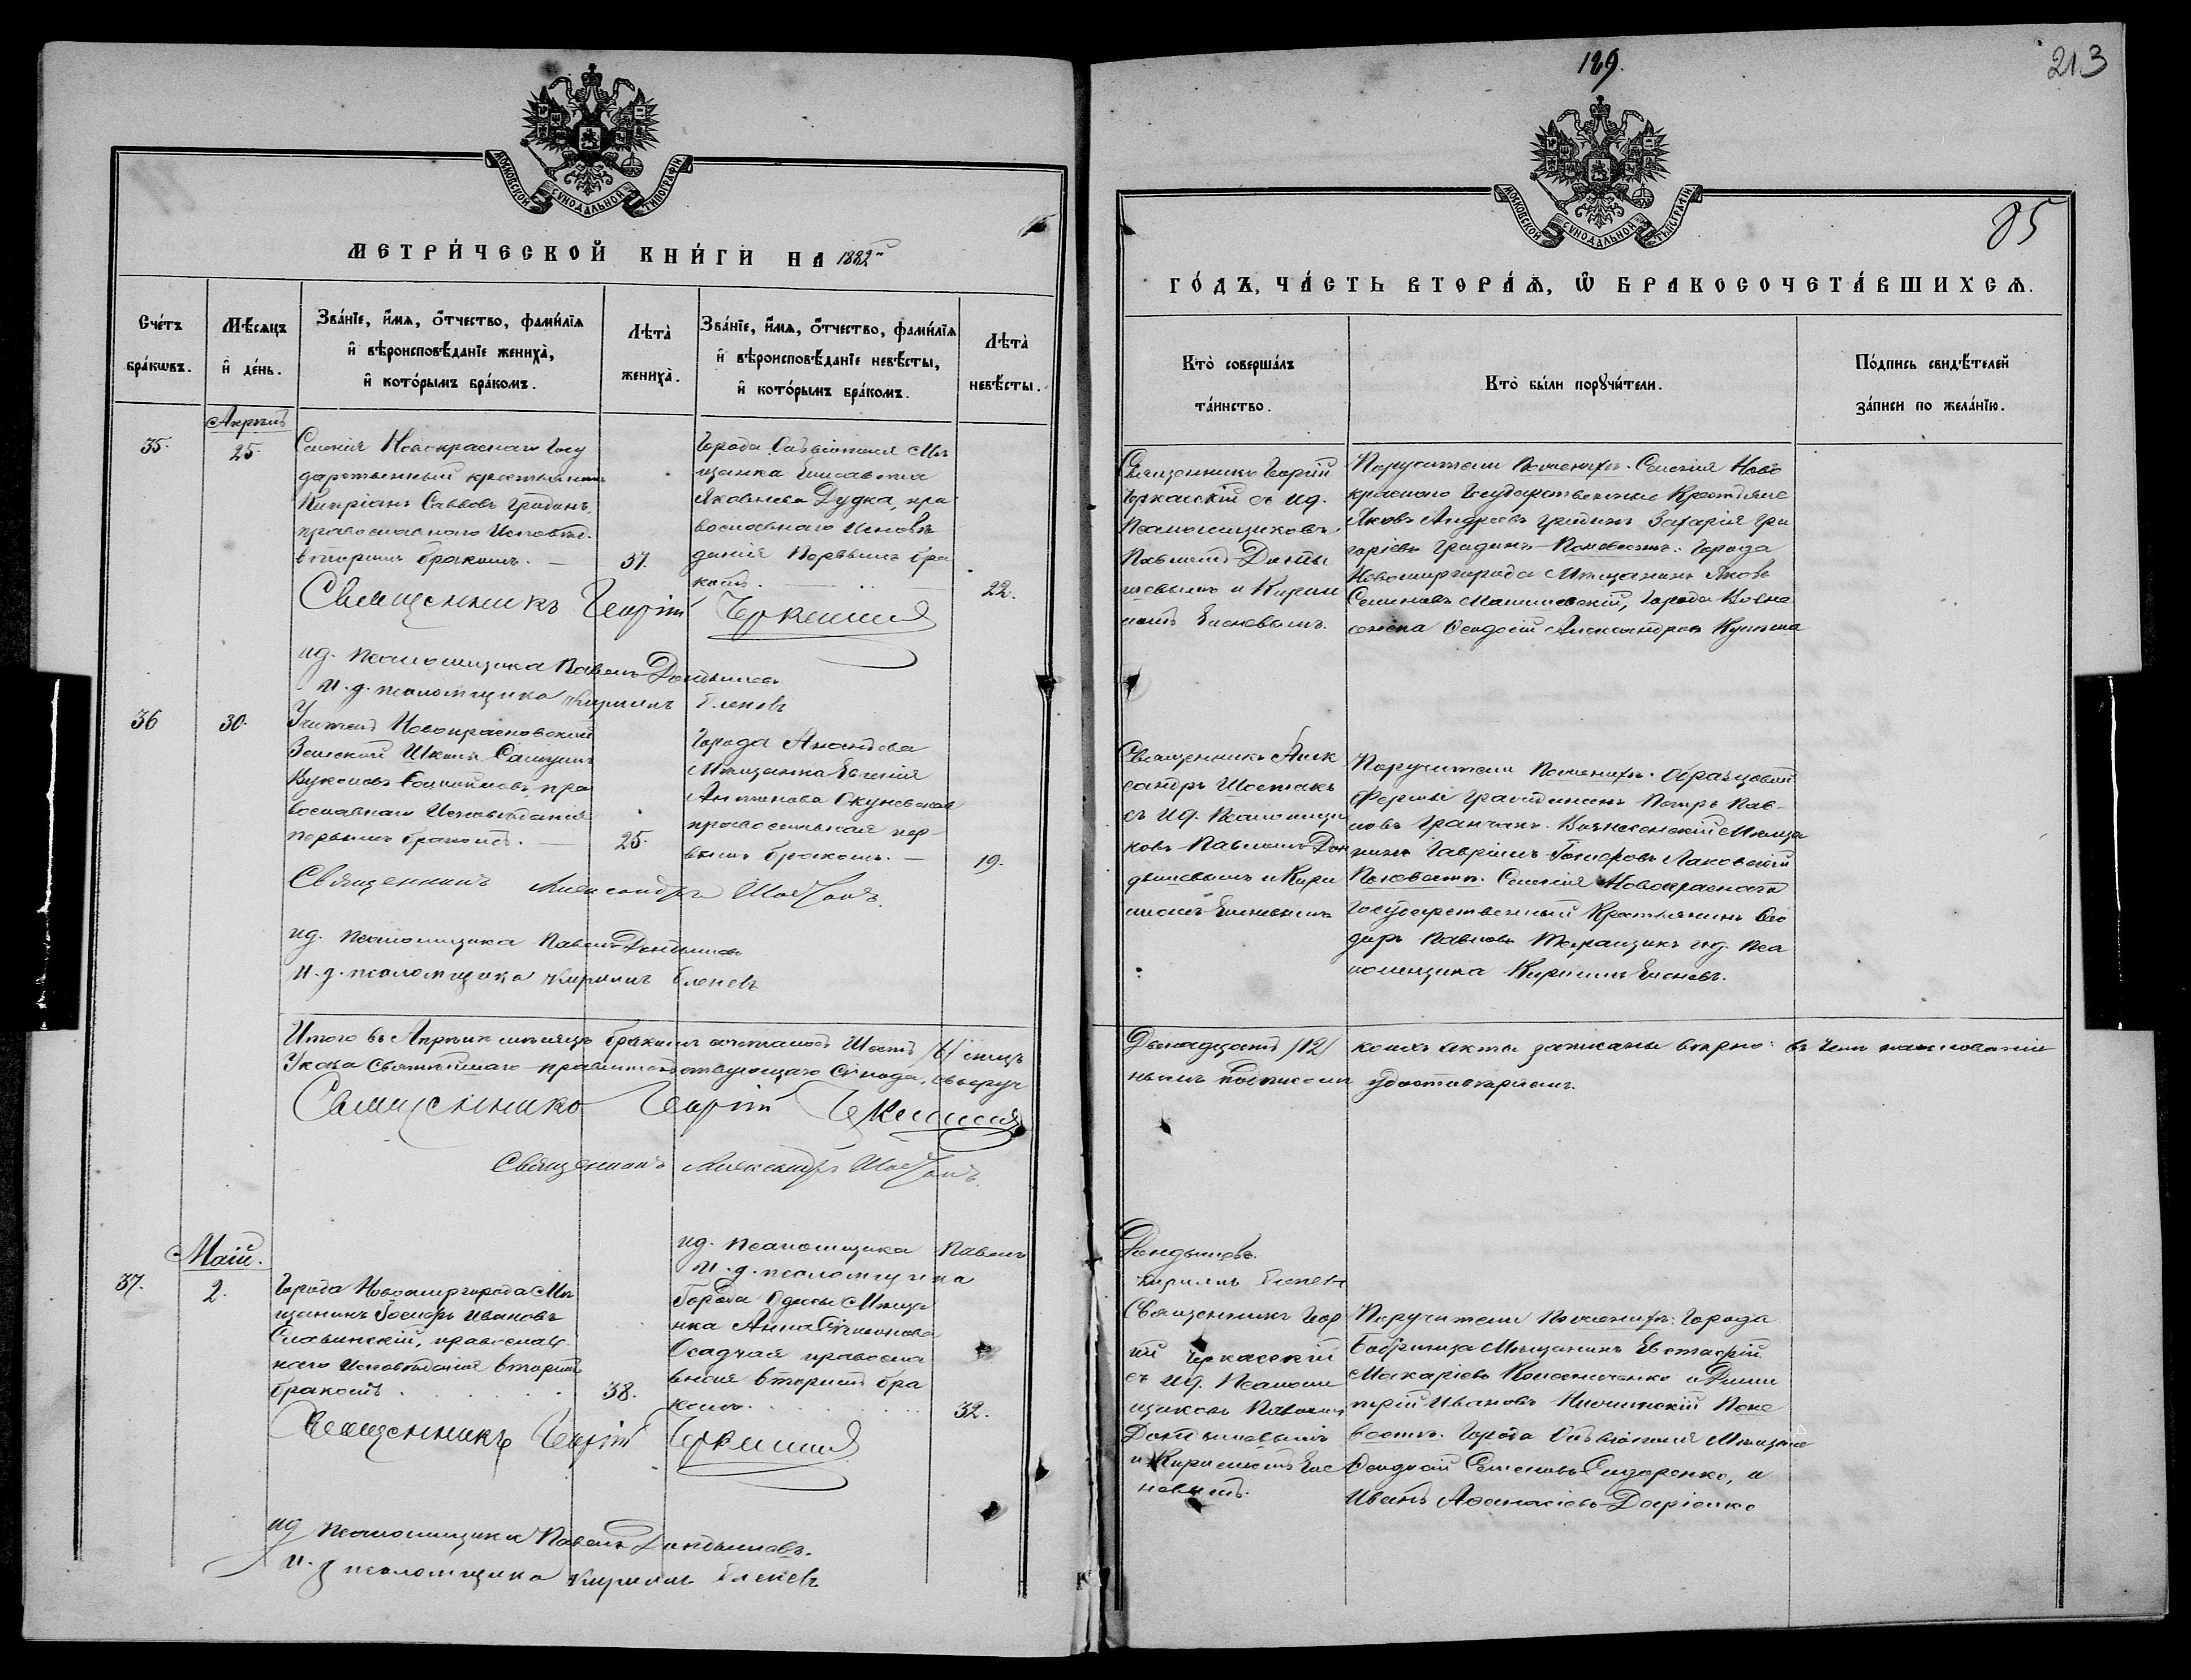 189.
213
85
МОСКОВСКОЙ СУНОДАЛЬНОЙ ТИПОГРАФІИ
МЕТРИ́ЧЕСКОЙ КНИ́ГИ НА 1882й
Сче́тъ бра́кѡвъ.
Мѣ́сяцъ и҆ де́нь.
Зва́нїе, и҆́мѧ, ѻ҆́тчество, фамі́лїѧ
и҆ вѣроисповѣ́данїе жениха̀,
и҆ кото́рымъ бра́комъ.
Лѣта̀ жениха̀.
Зва́нїе, и҆́мѧ, ѻ҆́тчество, фамі́лїѧ
и҆ вѣроисповѣ́данїе невѣ́сты,
и҆ кото́рымъ бра́комъ.
Лѣта̀ невѣ́сты.
Апрѣль
35.
25.
Селенія Новокраснаго Госу
дарственный крестьянинъ
Кипріанъ Саввовъ Градинъ,
православнаго Исповѣд.
вторымъ бракомъ. —
37.
Города Ольвіополя Мѣ
щанка Елисавета
Яковлева Дудка, пра
вославнаго Исповѣ
данія Первымъ бра
комъ.
22.
Священникъ Георгій Черкасскій
ид. псаломщика Павелъ Дондышевъ
И. д. псаломщика Кириллъ Еленевъ
36
30.
Учитель Новокрасновской
Земской Школы Самуилъ
православнаго Исповѣданія
первымъ бракомъ. —
25.
Города Ананьева
Мѣщанка Евгенія
Антонова Окуневская
православная пер-
вымъ бракомъ. —
19.
Священникъ Александръ Шостакъ.
ид. псаломщика Павелъ Дондышевъ
И. д. псаломщика Кириллъ Еленевъ
Итого въ Апрѣлѣ мѣсяцѣ бракомъ сочеталось Шесть /6/ лицъ
Указа Святѣйшаго правительствующаго Сѵнода, своеруч
Священникъ Георгій Черкасскій
Священникъ Александръ Шостакъ.
ид. псаломщика Павелъ
И. д. псаломщика
Май.
37.
2.
Города Новомиргорода Мѣ
щанинъ Іосифъ Ивановъ
Славинскій, православ-
наго Исповѣданія вторымъ
бракомъ
38.
Города Одессы Мѣща
нка Анна
Осадчая правосла
вная вторымъ бра
комъ.
32.
Священникъ Георгій Черкасскій
ид псаломщика Павелъ Дондышевъ.
И. д псаломщика Кириллъ Еленевъ
МОСКОВСКОЙ СУНОДАЛЬНОЙ ТИПОГРАФІИ
ГО́ДЪ, ЧА́СТЬ ВТОРА́Ѧ, Ѡ҆ БРАКОСОЧЕТА́ВШИХСѦ.
Кто̀ соверша́лъ та́инство.
Кто̀ бы́ли порꙋчи́тели.
По́дпись свидѣ́телей за́писи по жела́нїю.
Священникъ Георгій
Черкасскій съ ид.
Псаломщиковъ
Павломъ Донды
шевымъ и Кирил
ломъ Еленевымъ.
Поручители По женихѣ. Селенія Ново
краснаго Государственные Крестьяне
Яковъ Андреевъ Градинъ Захарія Гри
горіевъ Градинъ — По невѣстѣ: Города
Новомиргорода Мѣщанинъ Яковъ
Семеновъ, Города Возне
сенска Ѳеодосій Александровъ
Священникъ Алек
сандръ Шостакъ
съ ид. Псаломщи
ковъ Павломъ Дон
дышевымъ и Кири
лломъ Еленевымъ
Поручители По женихѣ. Образцовой
Фермы Гражданинъ Петръ Пав-
ловъ. Вознесенскій Мѣща
нинъ Гавріилъ
По невѣстѣ. Селенія Новокраснаго
Государственный Крестьянинъ Ѳео
доръ Павловъ ид. Пса
ломщика Кириллъ Еленевъ.
Двѣнадцать /12/ коихъ акты записаны вѣрно: въ чемъ на основаніи
нымъ подписомъ удостовѣряемъ.
Дондышевъ.
Кириллъ Еленевъ
Священникъ Геор
гій Черкасскій
съ ид. Псалом
щиковъ Павломъ
Дондышевымъ
и Кирилломъ Еле
невымъ.
Поручители По женихѣ: Города
Бобринца Мѣщанинъ Евстафій
Макаріевъ и Дими
трій Ивановъ По не
вѣстѣ. Города Ольвіополя Мѣщане
Ѳеодосій Семеновъ Сидоренко, и
Иванъ Аѳанасіевъ Даріенко